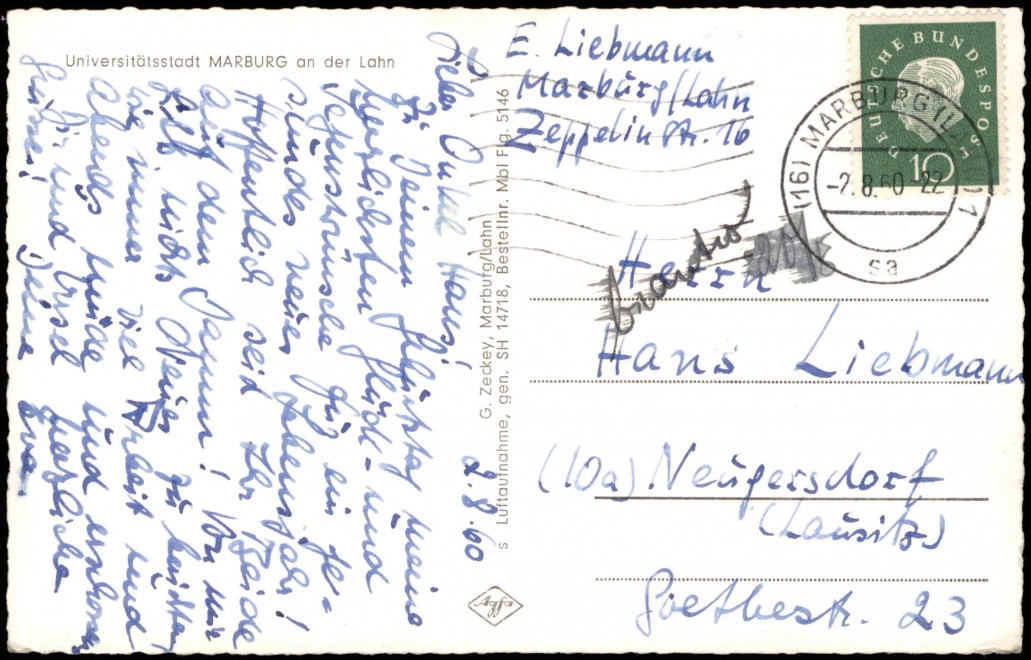 Universitätsstadt MARBURG an der Lahn
Lieber Onkel Hans!
Zu Deinem Geburtstag meine
herzlichsten Glück- und
Segenswünsche für ein ge-
sundes neues Lebensjahr!
Hoffentlich seid Ihr Beide
auf dem Damm! Von mir
gibt nichts Neues zu berichten
wie immer viel Arbeit und
abends müde und
Dir und Ursel herzliche
Grüsse! Deine Eva
2.8.60
G. Zeckey, Marburg/Lahn
s Luftaufnahme, gen. SH 14718, Bestellnr. Mbl Flg. 5146
Agfa
E. Liebmann
Marburg/Lahn
Zeppelinstr. 16
DEUTSCHE BUNDESPOST
10
(16) MARBURG (L
-2.8.60-22
sa
Herrn
Hans Liebmann
(10a) Neugersdorf
(Lausitz)
Goethestr. 23